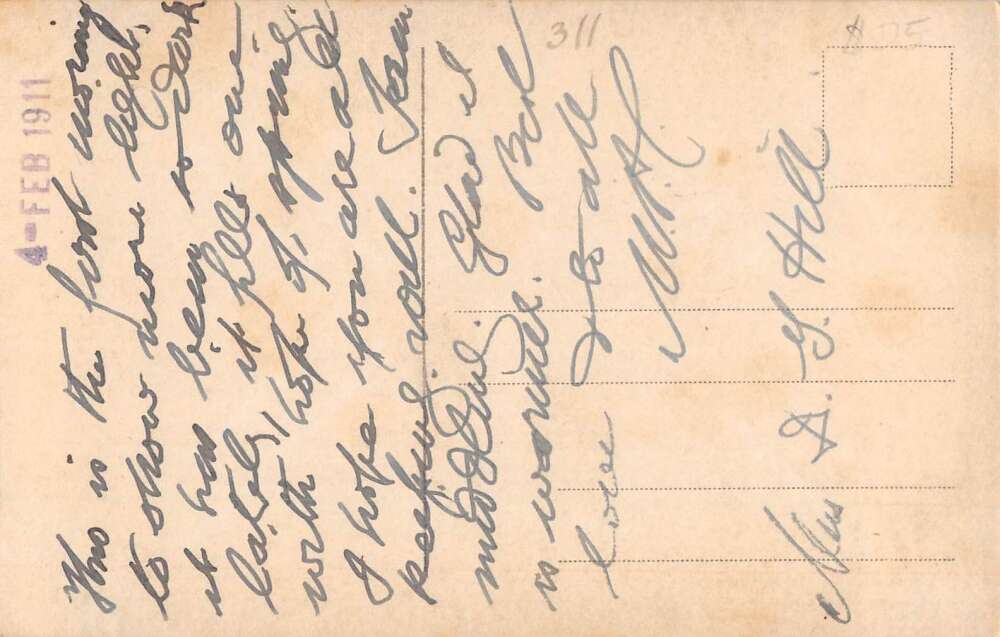 4 - FEB 1911
311
This is the first morning
to show more light,
it has been so dark
lately, it fills one
with hope of spring
I hope you are all
keeping well. I am
middling. Glad it
is warmer. Best
love to all
Mrs A. G. Hill